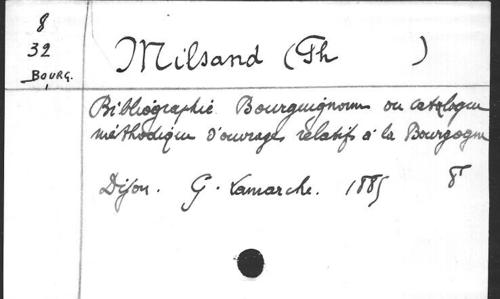 8
32
BOURG.
Milsand (Ph )
Bibliographie Bourguignonne ou catalogue
méthodique d'ouvrages relatifs à la Bourgogne
Dijon. G. Lamarche. 1885 8°